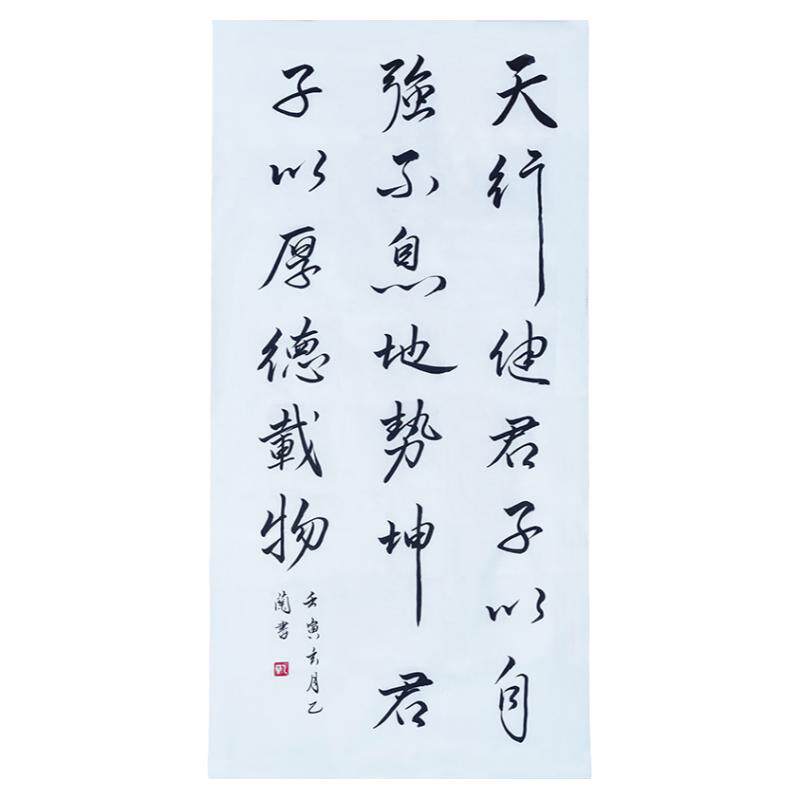 天行健君子以自
強不息地势坤君
子以厚德載物
壬寅玄月乙
蘭書